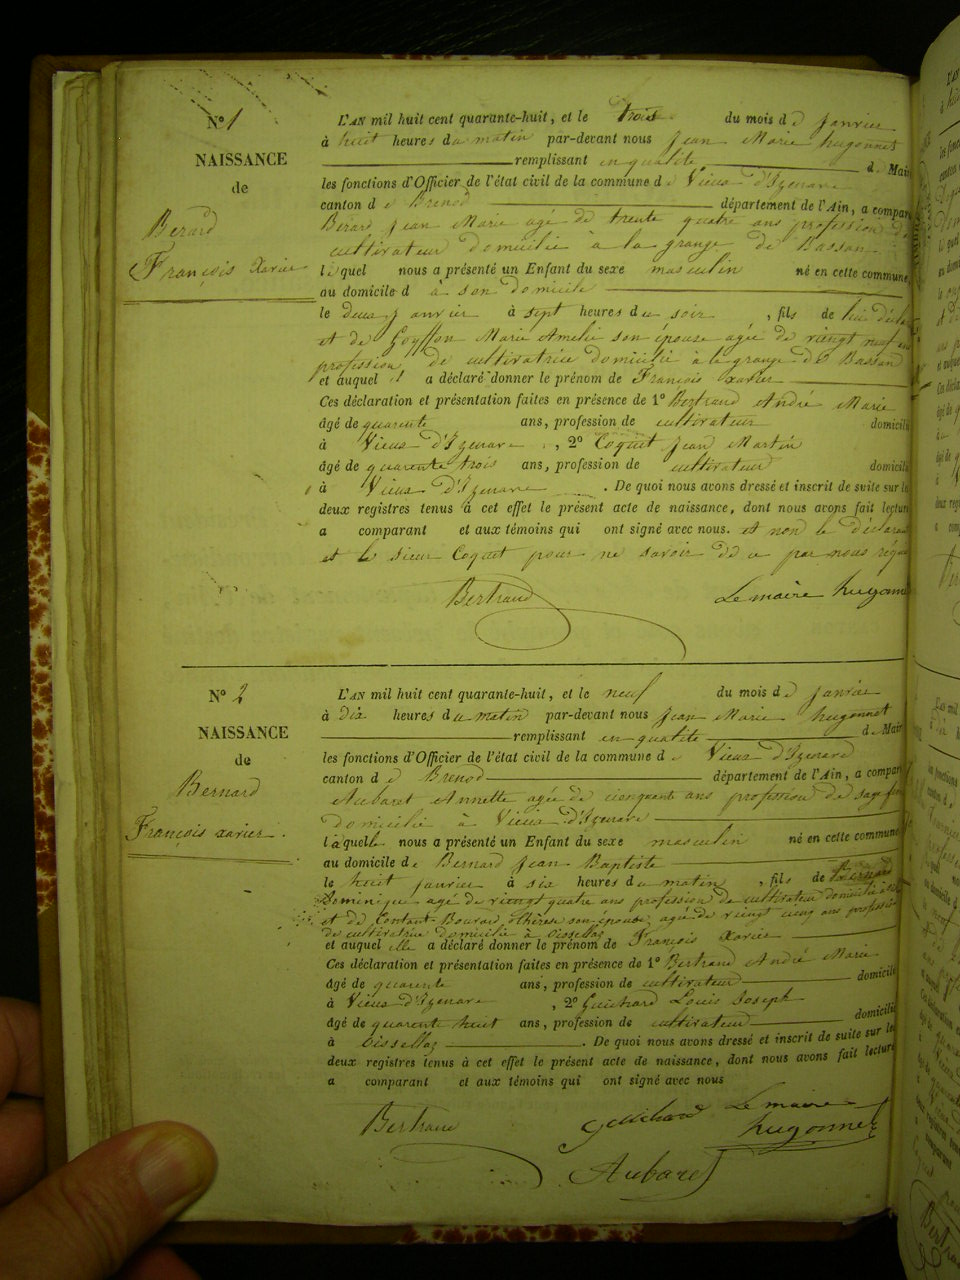 N° 1
NAISSANCE
de
Berard
François Xavier
L'AN mil huit cent quarante-huit, et le trois du mois de Janvier
à huit heures du matin par-devant nous Jean Marie hugonnet
remplissant en qualité d Mair
les fonctions d'Officier de l'état civil de la commune de Vieux d'Izenave
canton de Brenod département de l'Ain, a compar
Bérard Jean Marie agé de trente quatre ans profession de
cultivateur domicilié à la grange de Bassan
lequel nous a présenté un Enfant du sexe masculin né en cette commune,
au domicile d à son domicile
le deux Janvier à sept heures du soir, fils de lui décla
et de Goyffon Marie Amelie son épouse agée de vingt neuf ans
profession de cultivatrice domicilié à la grange de Bassan
et auquel il a déclaré donner le prénom de François xavier
Ces déclaration et présentation faites en présence de 1° Bertrand André Marie
âgé de quarente ans, profession de cultivateur domicilié
à Vieux d'Izenave, 2° Coquet Jean Martin
âgé de quarente trois ans, profession de cultivateur domicilié
à Vieux d'Izenave. De quoi nous avons dressé et inscrit de suite sur les
deux registres tenus à cet effet le présent acte de naissance, dont nous avons fait lecture
a comparant et aux témoins qui ont signé avec nous. et non le déclarant
et le sieur Coquet pour ne savoir de ce par nous réqui
Bertrand
Le maire hugonnet
N° 2
NAISSANCE
de
Bernard
François xavier.
L'AN mil huit cent quarante-huit, et le neuf du mois de Janvier
à dix heures du matin par-devant nous Jean Marie hugonnet
remplissant en qualité d Mair
les fonctions d'Officier de l'état civil de la commune de Vieux d'Izenave
canton de Brenod département de l'Ain, a compar
Aubaret Annette agée de cinquente ans profession de sage fem
domicilié à Vieux d'Izenave
laquelle nous a présenté un Enfant du sexe masculin né en cette commune
au domicile de Bernard Jean Baptiste
le huit janvier à six heures du matin, fils de Bernard
Dominique agé de vingt quatre ans profession de cultivateur domicilié à
et de Bourad thérèse son épouse agée de vingt cinq ans profession
de cultivatrice domicilié à Oissellaz
et auquel elle a déclaré donner le prénom de François Xavier
Ces déclaration et présentation faites en présence de 1° Bertrand André Marie
âgé de quarente ans, profession de cultivateur domicilié
à Vieux d'Izenave, 2° Guichard Louis Joseph
âgé de quarente huit ans, profession de cultivateur domicilié
à Oissellaz. De quoi nous avons dressé et inscrit de suite sur les
deux registres tenus à cet effet le présent acte de naissance, dont nous avons fait lecture
a comparant et aux témoins qui ont signé avec nous
Bertrand
Guichard
Le maire
hugonnet
Aubaret